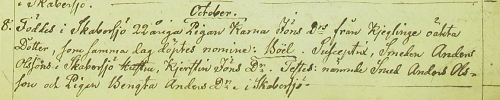 i Skabersjö.
October.
8. Föddes i Skabersjö 22 åriga Pigan Karna Jöns Dr från Kjeglinge oächta
Dotter, som samma dag döptes nomine: Boël. Susceptrix, Smeden Anders
Olssons i Skabersjö hustru, Kjerstin Jöns Dr. Testes: nämnde Smed Anders Ols-
son och Pigan Bengta Anders Dr i Skabersjö.